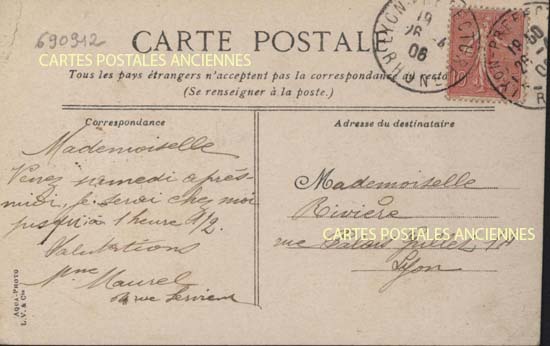 690912
CARTE POSTALE
CARTES POSTALES ANCIENNES
Tous les pays étrangers n'acceptent pas la correspondance au recto
(Se renseigner à la poste.)
LYON-PREFECTURE
19
06
RHONE
10
Correspondance
Mademoiselle
Venez samedi après-
midi, je serai chez moi
jusqu'à 1 heure 1/2.
Salutations
Mme Maurel
rue Servient
AQUA-PHOTO
L.V. & Cie
Adresse du destinataire
Mademoiselle
Rivière
CARTES POSTALES ANCIENNES
rue
Lyon